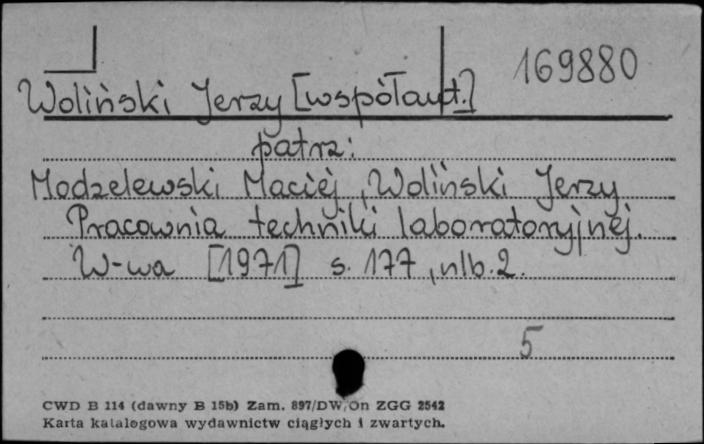 169880
Woliński Jerzy [współaut.]
patrz:
Modzelewski Maciej, Woliński Jerzy
Pracownia techniki laboratoryjnej.
W-wa [1971] s. 177, nlb. 2.
5
CWD B 114 (dawny B 15b) Zam. 897/DW/On ZGG 2542
Karta katalogowa wydawnictw ciągłych i zwartych.